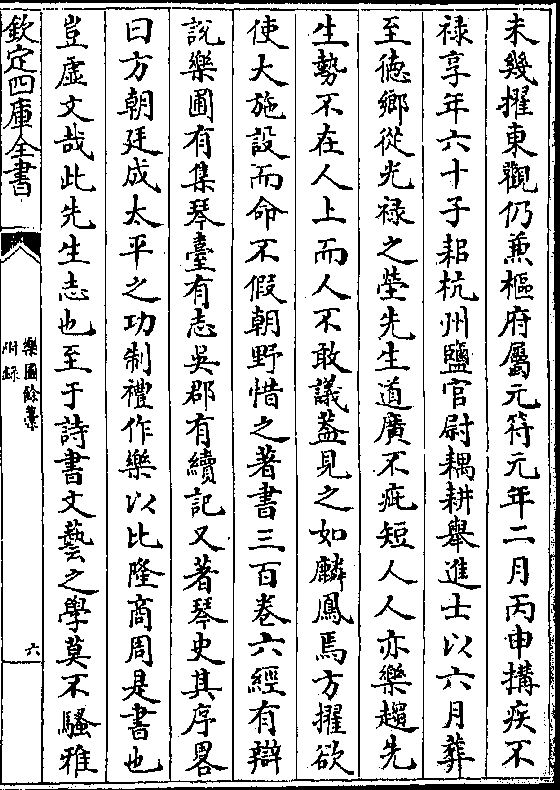 未幾擢東觀仍兼樞府屬元符元年二月丙申搆疾不
禄享年六十子耜杭州鹽官尉耦耕舉進士以六月葬
至徳鄉從光禄之塋先生道廣不疵短人人亦樂趨先
生勢不在人上而人不敢議葢見之如麟鳳焉方擢欲
使大施設而命不假朝野惜之著書三百卷六經有辯
說樂圃有集琴臺有志吳郡有續記又著琴史其序畧
曰方朝廷成太平之功制禮作樂以比隆商周是書也
豈虛文哉此先生志也至于詩書文藝之學莫不騷雅
欽定四庫全書
樂圃餘藁
附録
六